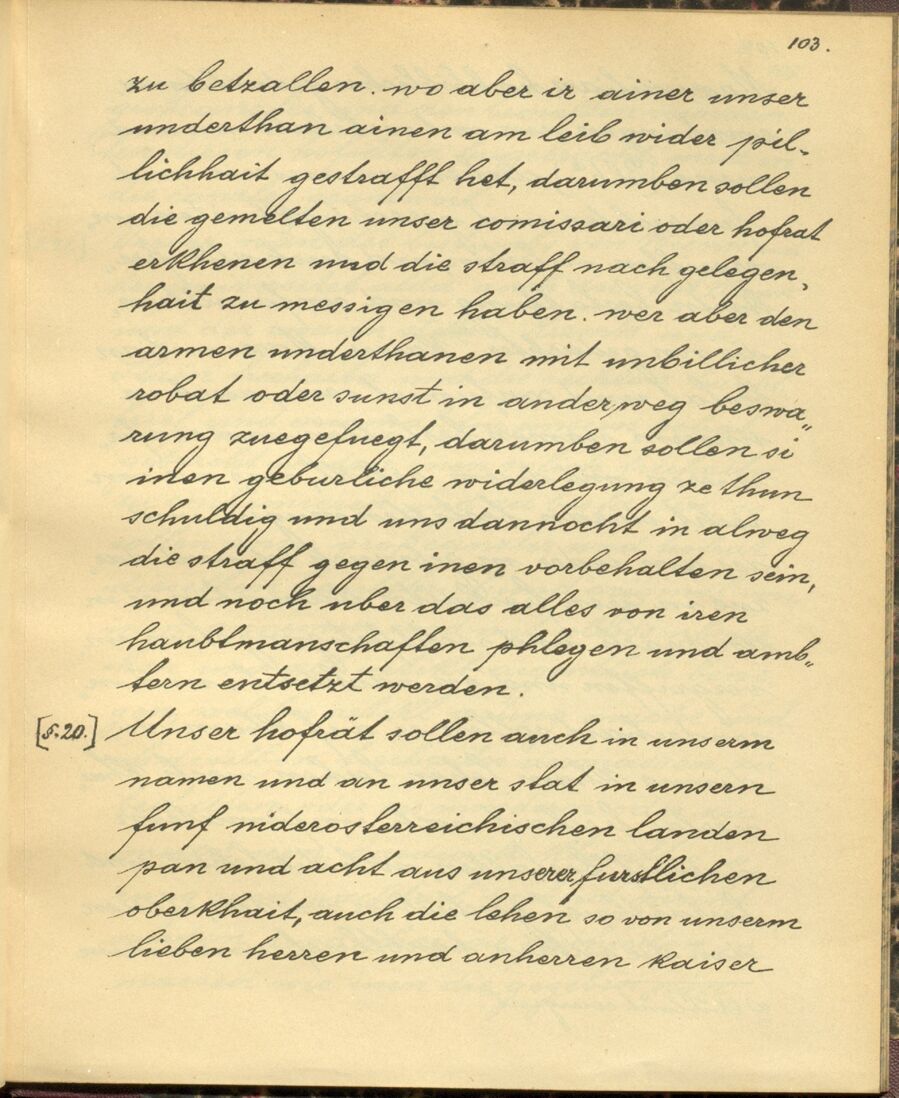 103.
zu betzallen. wo aber ir ainer unser
underthan ainen am leib wider pil-
lichhait gestrafft het, darumben sollen
die gemelten unser comissari oder hofrat
erkhenen und die straff nach gelegen-
hait zu messigen haben. wer aber den
armen underthanen mit unbillicher
robat oder sunst in ander weg beswa„
rung zuegefuegt, darumben sollen si
inen geburliche widerlegung ze thun
schuldig und uns dannocht in alweg
die straff gegen inen vorbehalten sein,
und noch uber das alles von iren
haubtmanschaften phlegen und amb„
tern entsetzt werden.
[§.20.] Unser hofrät sollen auch in unserm
namen und an unser stat in unsern
funf niderösterreichischen landen
pan und acht aus unserer furstlichen
oberkhait, auch die lehen so von unserm
lieben herren und anherren kaiser